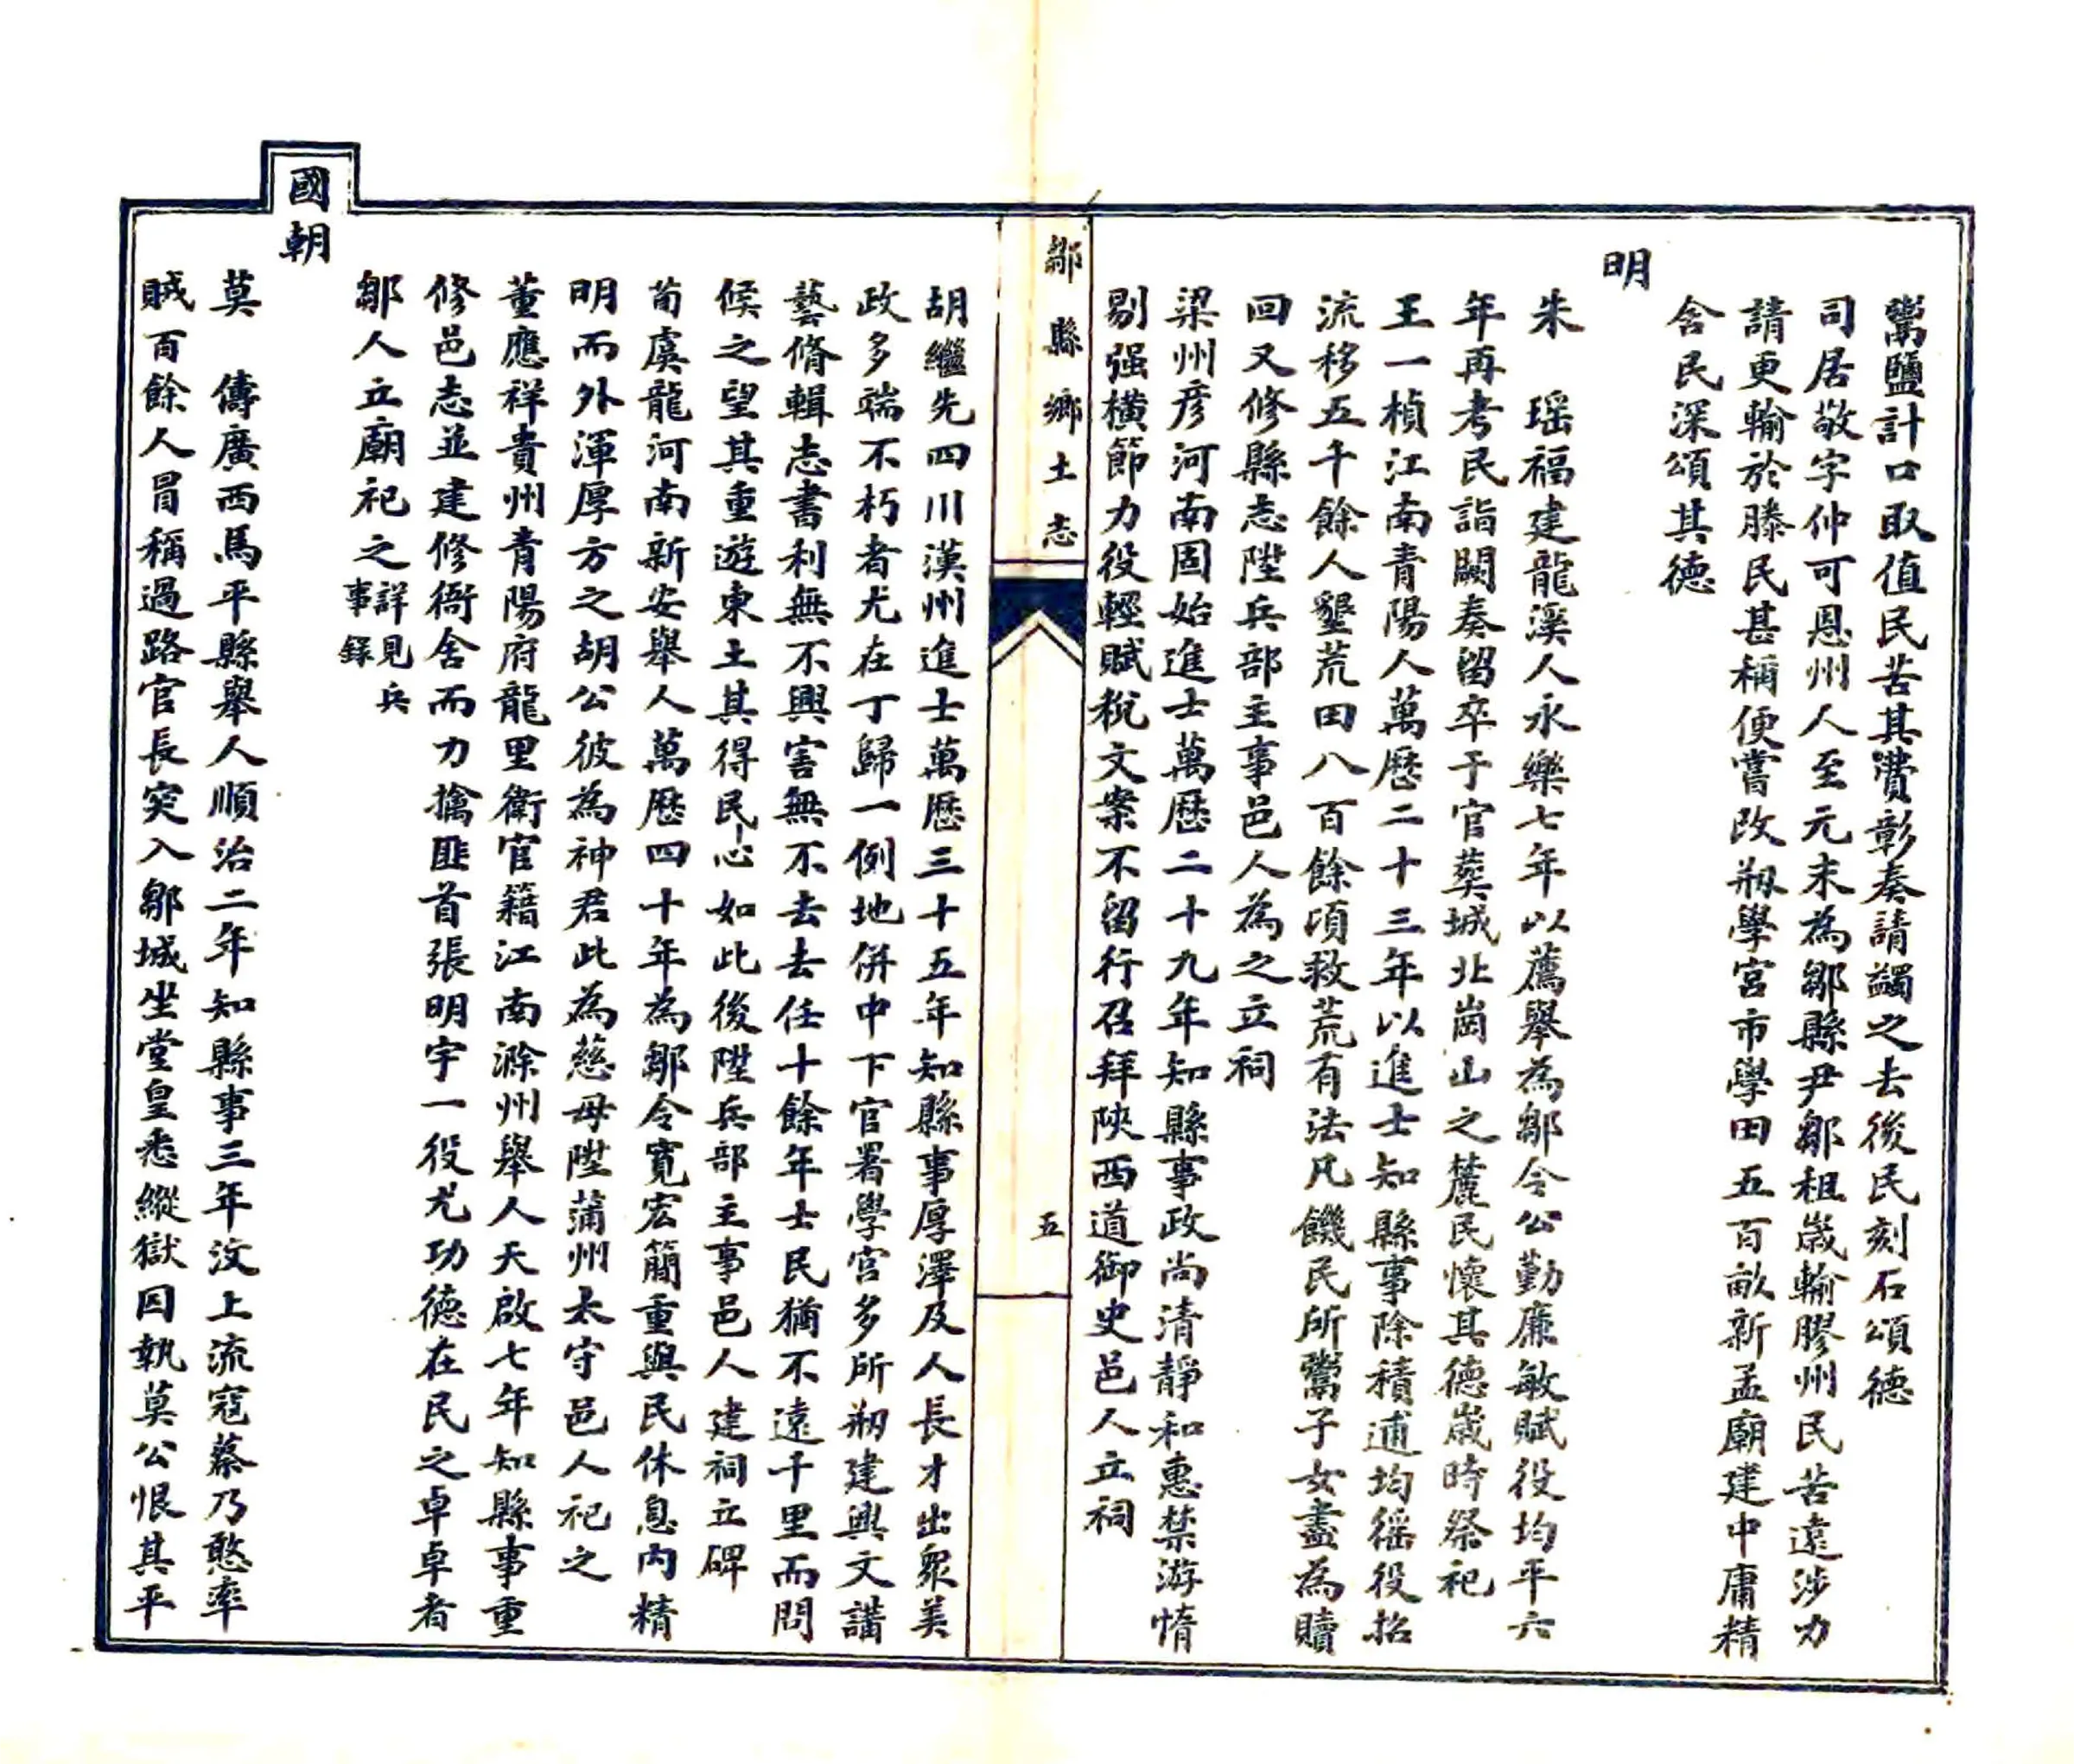 鬻鹽計口取值民苦其瀆彰奏請蠲之去後民刻石頌德
司居敬字仲可恩州人至元末為鄒縣尹鄒租歲輸膠州民苦遠涉力
請更輸於滕民甚稱便嘗改剏學宮市學田五百畝新孟廟建中庸精
舍民深頌其德
明
朱　瑤福建龍溪人永樂七年以薦舉為鄒令公勤廉敏賦役均平六
年再考民詣闕奏留卒于官葬城北崗山之麓民懷其德歲時祭祀
王一楨江南青陽人萬歷二十三年以進士知縣事除積逋均徭役招
流移五千餘人墾荒田八百餘頃救荒有法凡饑民所鬻子女盡為贖
回又修縣志陞兵部主事邑人為之立祠
梁州彥河南固始進士萬歷二十九年知縣事政尚清靜和惠禁游惰
剔强橫節力役輕賦稅文案不留行召拜陝西道御史邑人立祠
鄒縣鄉土志
五
胡繼先四川漢州進士萬歷三十五年知縣事厚澤及人長才出眾美
政多端不朽者尤在丁歸一例地併中下官署學宮多所剏建興文講
藝脩輯志書利無不興害無不去去任十餘年士民猶不遠千里而問
候之望其重遊東土其得民心如此後陞兵部主事邑人建祠立碑
荀虞龍河南新安舉人萬歷四十年為鄒令寬宏簡重與民休息內精
明而外渾厚方之胡公彼為神君此為慈母陞蒲州太守邑人祀之
董應祥貴州青陽府龍里衛官籍江南滁州舉人天啟七年知縣事重
修邑志並建修衙舍而力擒匪首張明宇一役尤功德在民之卓卓者
鄒人立廟祀之詳見兵事錄
國朝
莫　傳廣西馬平縣舉人順治二年知縣事三年汶上流寇蔡乃憨率
賊百餘人冒稱過路官長突入鄒城坐堂皇悉縱獄囚執莫公恨其平